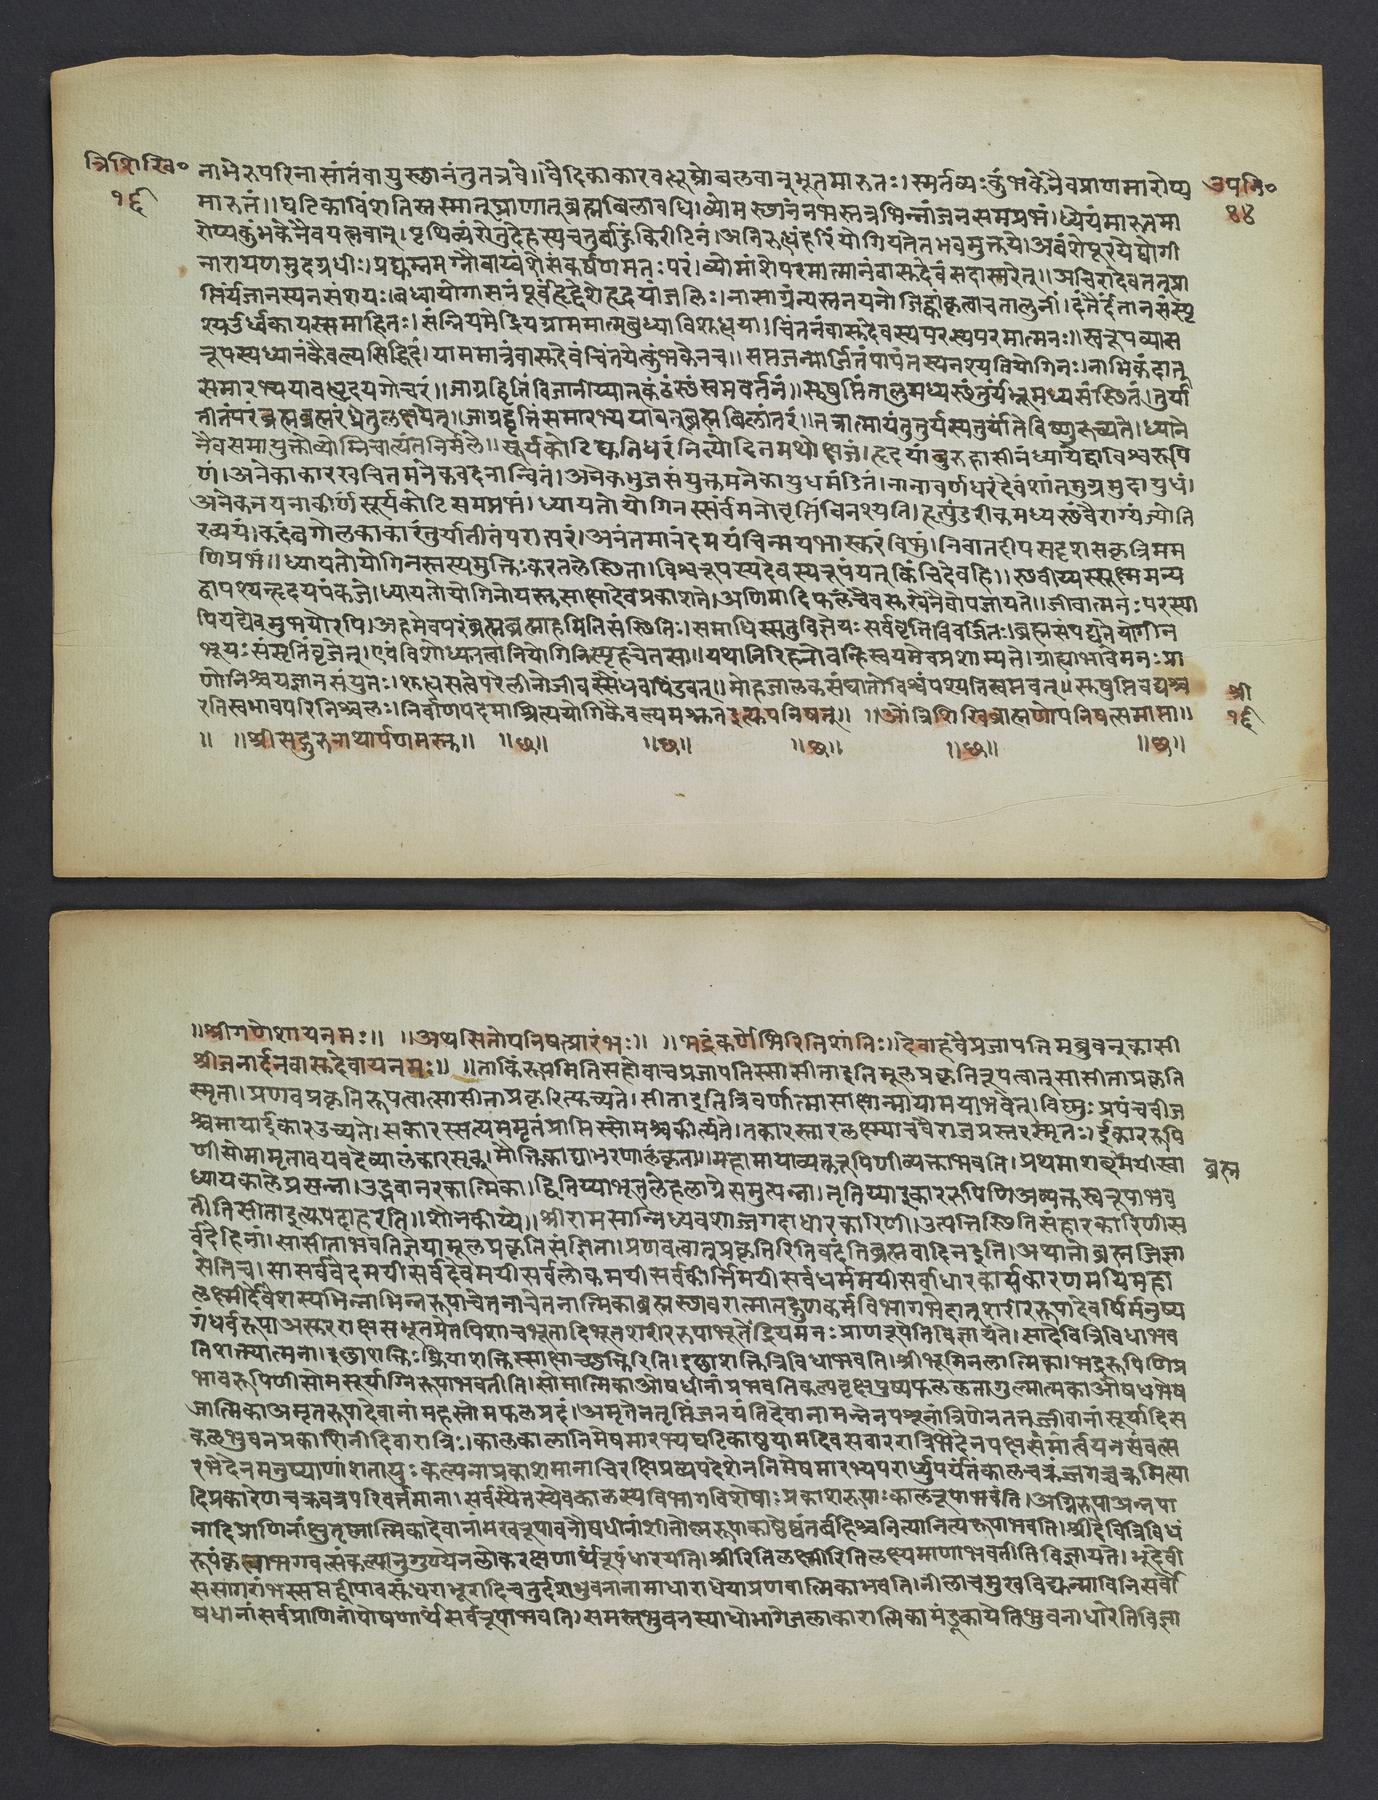 त्रिशिखि०
१६
उपनि०
४४
नाभेरुपरिनासांतंवायुस्छानंतुतत्रवै॥वैदिकाकारवद्धूम्रोबलवान्भूतमारुतः।स्मर्तव्यःकुंभकेनैवप्राणमारोप्य
मारुतं॥घटिकाविंशतिस्तस्मात्प्राणात्ब्रह्मबिलावधि।व्योमस्छानंनभस्तत्रभिन्नांजनसमप्रभं।ध्येयंमारुतमा
रोप्यकुंभकेनैवयत्नवान्।पृथिव्यंशेतुदेहस्यचतुर्बाहुंकिरीटिनं।अनिरुध्धंहरिंयोगियतेतभवमुक्तये।अबंशेपूरयेद्योगी
नारायणमुदग्रधीः।प्रद्युम्नमग्नौवाय्वंशेसंकर्षणमतःपरं।व्योमांशेपरमात्मानंवासुदेवंसदास्मरेत्॥अचिरादेवतत्प्रा
प्तिर्युंजानस्यनसंशयः।बध्वायोगासनंपूर्वंहृद्देशेहृदयांजलिः।नासाग्रंन्यस्तनयनोजिह्वांकृत्वाचतालुनी।दंतैर्दंतानसंस्पृ
श्यउर्ध्वकायस्समाहितः।संन्नियमेद्रियग्राममात्मबुध्याविशुध्धया।चिंतनंवासुदेवस्यपरस्यपरमात्मनः॥स्वरूपव्याप्त
रूपस्यध्यानंकैवल्यसिद्धिदं।याममात्रंवासुदेवंचिंतयेत्कुंभकेनच॥सप्तजन्मार्जितंपापंतस्यनश्यतियोगिनः।नाभिकंदात्
समारभ्ययावध्धृदयगोचरं।जाग्रद्वृत्तिंविजानीय्यात्कंठस्छंस्वप्नवर्तनं॥सुषुप्तिंतालुमध्यस्छंतुर्यंभ्रूमध्यसंस्छितं।तुर्या
तीतंपरंब्रह्मब्रह्मरंध्रेतुलक्षयेत्॥जाग्रद्वृत्तिंसमारभ्ययावत्ब्रह्मबिलांतरं॥तत्रात्मायंतुतुर्यस्यतुर्यांतेविष्णुरुच्यते।ध्याने
नैवसमायुक्तोव्योम्निचात्यंतनिर्मले॥सूर्यकोटिद्युतिधरंनित्योदितमधोक्षजं।हृदयांबुरुहासीनंध्यायेद्वाविश्वरूपि
णं।अनेकाकारखचितमनेकवदनान्वितं।अनेकभुजसंयुक्तमनेकायुधमंडितं।नानावर्णधरंदेवंशांतमुग्रमुदायुधं।
अनेकनयनाकीर्णंसूर्यकोटिसमप्रभं।ध्यायतोयोगिनस्सर्वमनोवृत्तिर्विनश्यति।हृत्पुंडरीकमध्यस्छंवैराग्यंज्योति
रव्ययं।कदंबगोलकाकारंतुर्यातीतंपरात्परं।अनंतमानंदमयंचिन्मयभास्करंविभुं।निवातदीपसदृशसकृत्रिमम
णिप्रभं॥ध्यायतोयोगिनस्तस्यमुक्तिःकरतलेस्छिता।विश्वरूपस्यदेवस्यरूपंयत्किंचिदेवहि॥स्छवीय्यस्सूक्ष्ममन्य
द्वापश्यन्हृदयपंकजे।ध्यायतोयोगिनोयस्तुसाक्षादेवप्रकाशते।अणिमादिफलंचैवसुखेनैवोपजायते॥जीवात्मनःपरस्या
पियद्येवमुभयोरपि।अहमेवपरंब्रह्मब्रह्माहमितिसंस्छितिः।समाधिस्सतुविज्ञेयःसर्ववृत्तिविवर्जितः।ब्रह्मसंपद्यतेयोगीन
भूयःसंसृतिंव्रजेत्।एवंविशोध्यतत्वानियोगिनिस्पृहचेतसा॥यथानिरिंहनोवन्हिस्वयमेवप्रशाम्यते।ग्राह्याभावेमनःप्रा
णोनिश्चयज्ञानसंयुतः।शुध्धसत्वेपरेलीनोजीवस्सैंधवपिंडवत्॥मोहजालकसंघातोविश्वंपश्यतिस्वप्नवत्॥सुषुप्तिवद्यश्च
रतिस्वभावपरिनिश्चलः।निर्वाणपदमाश्रित्ययोगिकैवल्यमश्नुतइत्युपनिषत्॥ ॥ओंत्रिशिखिब्राह्मणोपनिषत्समाप्ता॥
॥ ॥श्रीसद्गुरुनाथार्पणमस्तु॥ ॥छ॥ ॥छ॥ ॥छ॥ ॥छ॥ ॥छ॥
श्री
१६
॥श्रीगणेशायनमः॥ ॥अथसितोपनिषत्प्रारंभः॥ ॥भद्रंकर्णेभिरितिशांतिः॥देवाहवैप्रजापतिमब्रुवन्कासी
श्रीजनार्दनवासुदेवायनमः॥ ॥ताकिंरूपमितिसहोवाचप्रजापतिस्सासीताइतिमूलप्रकृतिरूपत्वात्सासीताप्रकृति
स्मृता।प्रणवप्रकृतिरूपत्वात्सासीताप्रकृरित्युच्यते।सीताइतित्रिवर्णात्मासाक्षान्मायामयाभवेत्।विष्णुःप्रपंचबीज
श्चमायाईकारउच्यते।सकारस्सत्यममृतंप्राप्तिस्सोमश्चकीर्त्यते।तकारस्तारलक्ष्म्याचवैराजप्रस्तरस्मृतः।ईकाररूपि
णीसोमामृतावयवदेव्यालंकारसृक्।मौक्तिकाद्याभरणालंकृता॥महामायाव्यक्तरूपिणीव्यक्ताभवति।प्रथमाशब्दमयीस्वा
ब्रह्म
ध्यायकालेप्रसन्ना।उद्भवानरकात्मिका।द्वितिय्याभूतलेहलाग्रेसमुत्पन्ना।तृतिय्याइकाररूपिणिअव्यक्तस्वरूपाभव
तीतिसीताइत्युपदाहरति॥शौनकीय्ये॥श्रीरामसान्निध्यवशाज्जगदाधारकारिणी।उत्पत्तिस्छितिसंहारकारिणीस
र्वदेहिनां।सासीताभवतिज्ञेयामूलप्रकृतिसंज्ञिता।प्रणवत्वात्प्रकृतिरितिवदंतिब्रह्मवादिनइति।अथातोब्रह्मजिज्ञा
सेतिच।सासर्ववेदमयीसर्वदेवमयीसर्वलोकमयीसर्वकीर्त्तिमयीसर्वधर्ममयीसर्वाधारकार्यकारणमयिमहा
लक्ष्मीर्देवेशस्यभिन्नाभिन्नरूपाचेतनाचेतनात्मिकाब्रह्मस्छावरात्मातद्गुणकर्मविभागभेदात्शरीररूपादेवर्षिमनुष्य
गंधर्वरूपाअसुरराक्षसभूतप्रेतपिशाचभूतादिभूतशरीररूपाभूतेंद्रियमनःप्राणरूपेतिविज्ञायते।सादेवित्रिविधाभव
तिशक्त्यात्मना।इछाशक्तिःक्रियाशक्तिस्साक्षाच्छक्तिरिति।इछाशक्तित्रिविधाभवति।श्रीभूमिनलात्मिका।भद्ररूपिणिप्र
भावरूपिणीसोमसूर्याग्निरूपाभवतीति।सोमात्मिकाओषधीनांप्रभवतिकल्पवृक्षपुष्पफललतागुल्मात्मकाऔषधभेष
जात्मिकाअमृतरूपादेवानांमहस्तोमफलप्रदं।अमृतेनतृप्तिंजनयंतिदेवानामन्नेनपशूनांत्रिणेनतत्तज्जीवानांसूर्यादिस
कलभुवनप्रकाशिनीदिवारात्रिः।कालकालानिमेषमारभ्यघटिकाष्ठयामदिवसवाररात्रिभेदेनपक्षसंमार्त्वयनसंवत्स
रभेदेनमनुष्याणांशतायुःकल्पनाप्रकाशमानाचिरक्षिप्रव्यपदेशेननिमेषमारभ्यपरार्ध्यपर्यंतंकालचक्रंजगच्चक्रमित्या
दिप्रकारेणचक्रवत्परिवर्त्तमाना।सर्वस्यैतस्यैवकालस्यविभागविशेषाःप्रकाशरूपाःकालरूपाभवंति।अग्निरूपाअन्नपा
नादिप्राणिनांक्षुतृष्णात्मिकादेवानांमुखरूपावनौषधीनांशीतोष्णरूपाकाष्ठेष्वंतर्बहिश्चनित्यानित्यरूपाभवति।श्रीदेवित्रिविधं
रूपंकृत्वाभगवत्संकल्पानुगुण्येनलोकरक्षणार्थंरूपंधारयति।श्रीरितिलक्ष्मीरितिलक्ष्यमाणाभवतीतिविज्ञायते।भूदेवी
ससागरांभस्सप्तद्वीपावसुंधराभूरादिचतुर्दशभुवनानामाधाराधेयाप्रणवात्मिकाभवति।नीलाचमुखविद्युन्मालिनिसर्वौ
षधानांसर्वप्राणिनांपोषणार्थंसर्वरूपाभवति।समस्तभुवनस्याधोभागेजलाकारात्मिकामंडूकायेतिभुवनाधारेतिविज्ञा